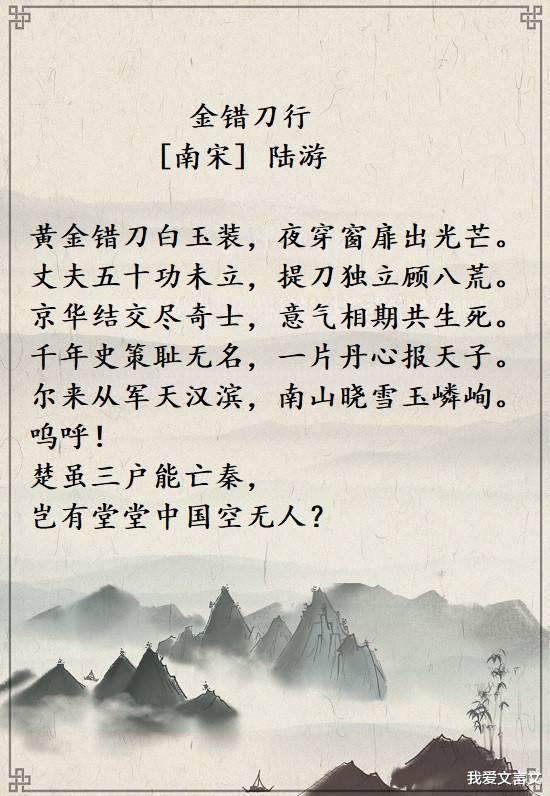 金错刀行
[南宋] 陆游
黄金错刀白玉装，夜穿窗扉出光芒。
丈夫五十功未立，提刀独立顾八荒。
京华结交尽奇士，意气相期共生死。
千年史策耻无名，一片丹心报天子。
尔来从军天汉滨，南山晓雪玉嶙峋。
呜呼！
楚虽三户能亡秦，
岂有堂堂中国空无人？
我爱文言文